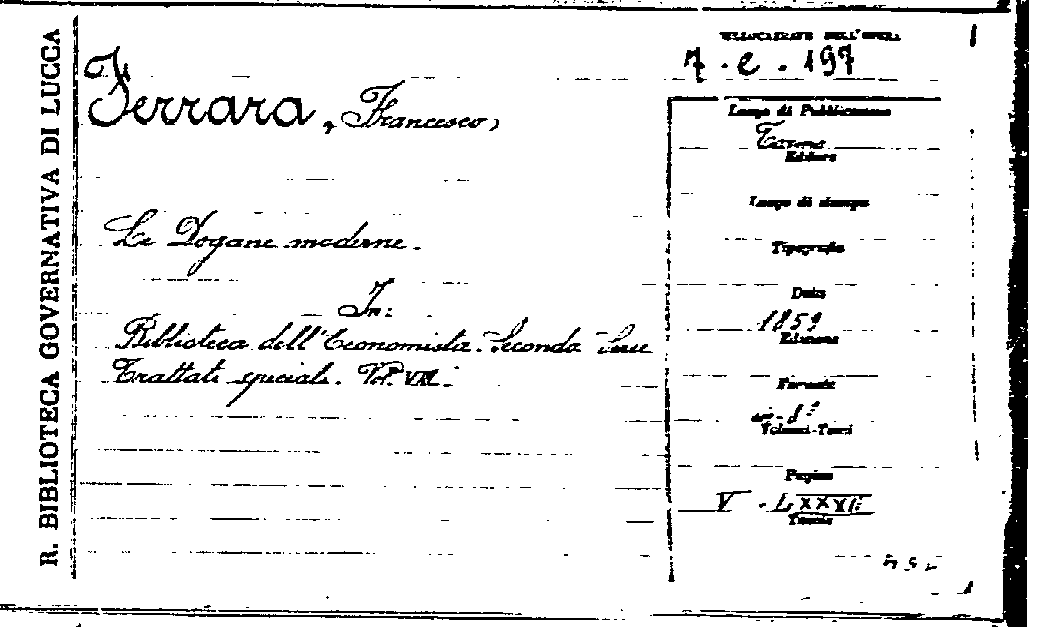 R. BIBLIOTECA GOVERNATIVA DI LUCCA
COLLOCAZIONE DELL'OPERA
7 · e · 197
Ferrara, Francesco,
Le Dogane moderne.
In:
Biblioteca dell'Economista. Seconda Serie
Trattati speciali. Vol. VIII.
Luogo di Pubblicazione
Torino
Editore
Luogo di stampa
Tipografia
Data
1859
Edizione
Formato
in-8°
Volumi-Tomi
Pagine
V - LXXXII
Tavole